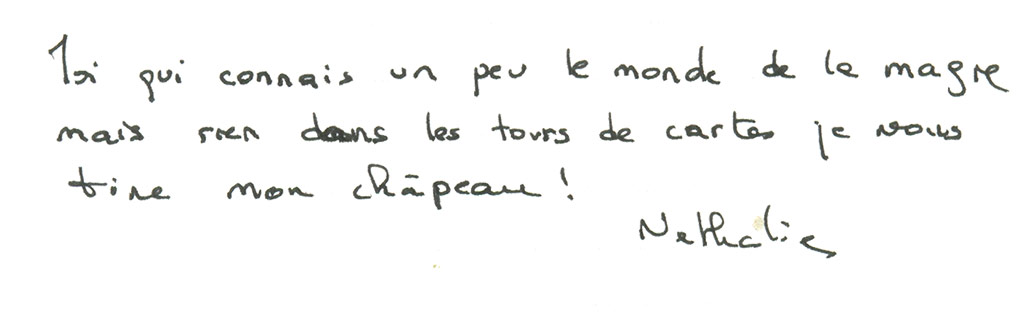 Moi qui connais un peu le monde de la magie
mais rien dans les tours de cartes je vous
tire mon châpeau !
Nathalie